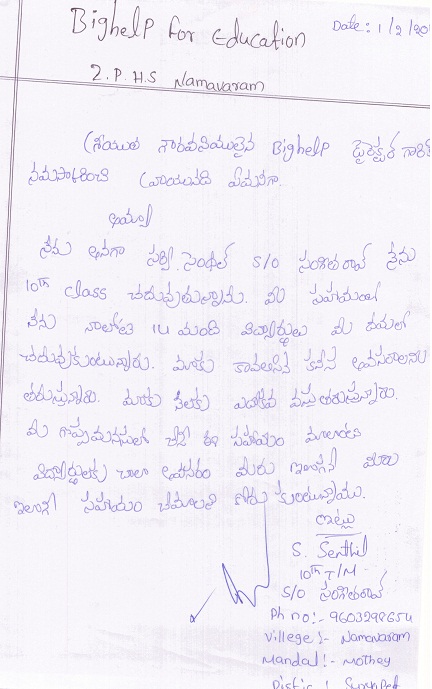 Bighelp for Education
Date: 1/2/20
Z.P.H.S Namavaram
గౌరవనీయులైన Bighelp డైరెక్టర్ గారికి
నమస్కరించి వ్రాయునది ఏమనగా.
అయ్యా
నేను అనగా సర్వి సెంథిల్ S/O సంగీతరావ్ నేను
10th class చదువుతున్నాను. మీ సహాయంతో
నేను నాతోటి 14 మంది విద్యార్థులు మీ దయలో
చదువుకుంటున్నారు. మాకు కావలసిన కనీస అవసరాలను
తీరుస్తున్నారు. మాకు నెలకు
మీ గొప్పమనసులో చేసే ఈ సహాయం మాలాంటి
విద్యార్థులకు చాలా అవసరం మీరు ఇలాగే మీరు
ఇలాగే సహాయం చేయాలని కోరుకుంటున్నాము.
ఇట్లు
S. Senthil
10th T/M
S/O సంగీతరావ్
Ph no:- 9603298654
Villege:- Namavaram
Mandal:- Mothey
Distic: Suryapet